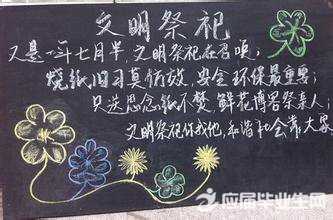 文明祭祀
又是一年七月半,文明祭祀在召唤;
烧纸旧习莫仿效,安全环保最重要;
只送思念纸不焚,鲜花博客祭亲人,
文明祭祀你我他,和谐社会靠大家
应届毕业生网